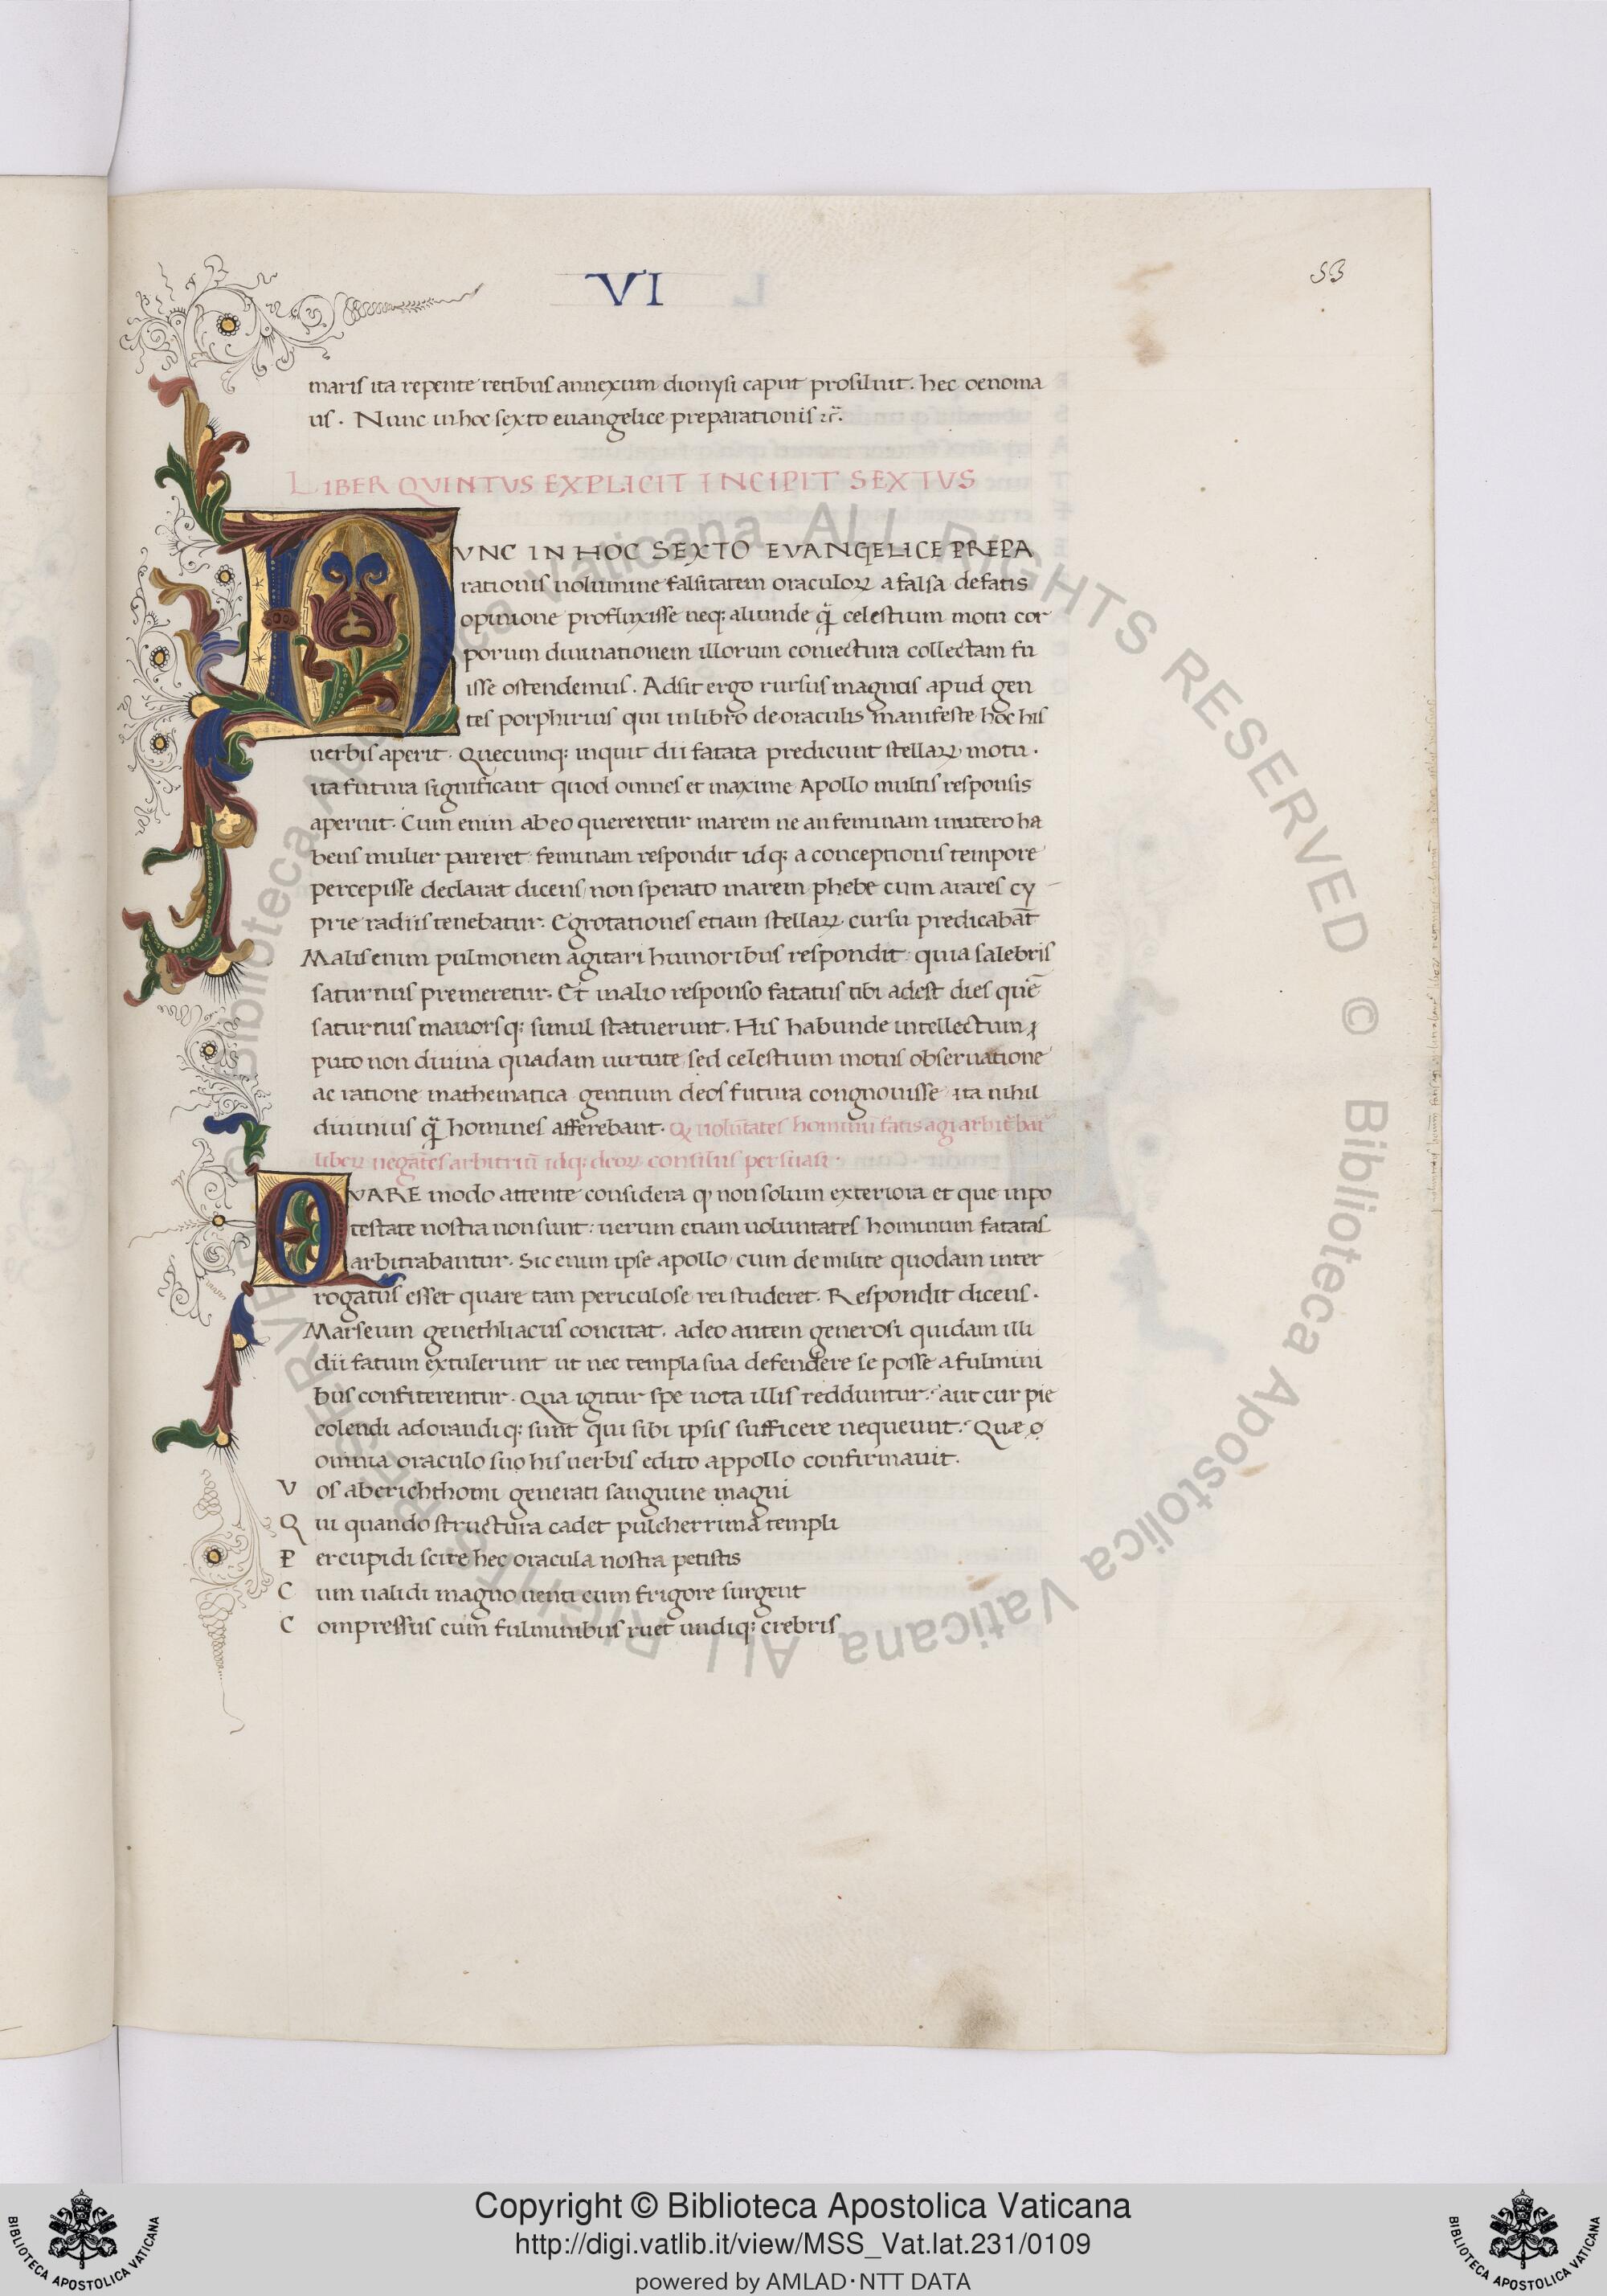 VI
53
maris ita repente retibus annexum dionysi caput prosiluit. hec oenoma
us. Nunc in hoc sexto euangelice preparationis ⁊c̃.
LIBER QVINTVS EXPLICIT INCIPIT SEXTVS
NVNC IN HOC SEXTO EVANGELICE PREPA
rationis uolumine falsitatem oraculoꝝ a falsa de fatis
opinione profluxisse neq; aliunde q̃ celestium motu cor
porum diuinationem illorum coniectura collectam fu
isse ostendemus. Adsit ergo rursus magnus apud gen
tes porphirius qui in libro de oraculis manifeste hoc his
uerbis aperit. Quecumq; inquit dii fatata predicunt stellaꝝ motu.
ita futura significant quod omnes et maxime Apollo multis responsis
aperuit. Cum enim ab eo quereretur marem ne an feminam in utero ha
bens mulier pareret: feminam respondit idq; a conceptionis tempore
percepisse declarat dicens non sperato marem phebe cum arares cy
prie radiis tenebatur. Egrotationes etiam stellaꝝ cursu predicabãt
Malis enim pulmonem agitari humoribus respondit: quia salebris
saturnus premeretur. Et in alio responso fatatus tibi adest dies quẽ
saturnus mauorsq; simul statuerunt. His habunde intellectum
puto non diuina quadam uirtute sed celestium motus obseruatione
ac ratione mathematica gentium deos futura congnouisse ita nihil
diuinius q̃ homines afferebant. Qꝫ uolũtates hominũ fatis agi arbit̃bãt᷑
liberꝫ negãtes arbitriũ idq; deoꝝ consiliis persuasi.
QVARE modo attente considera ꝙ non solum exteriora et que in po
testate nostra non sunt: uerum etiam uoluntates hominum fatatas
arbitrabantur. Sic enim ipse apollo cum de milite quodam inter
rogatus esset quare tam periculose rei studeret. Respondit dicens.
Mars eum genethliacus concitat. adeo autem generosi quidam illi
dii fatum extulerunt ut nec templa sua defendere se posse a fulmini
bus confiterentur. Qua igitur spe uota illis redduntur: aut cur pie
colendi adorandiq; sunt qui sibi ipsis sufficere nequeunt. Quæ
omnia oraculo suo his uerbis edito appollo confirmauit.
Vos ab erichthoni generati sanguine magni
Qui quando structura cadet pulcherrima templi
Per cupidi scire hec oracula nostra petistis
Cum ualidi magno uenti cum frigore surgent
Compressus cum fulminibus ruet undiq; crebris
Copyright © Biblioteca Apostolica Vaticana
http://digi.vatlib.it/view/MSS_Vat.lat.231/0109
powered by AMLAD·NTT DATA
BIBLIOTECA APOSTOLICA VATICANA
BIBLIOTECA APOSTOLICA VATICANA
© Biblioteca Apostolica Vaticana ALL RIGHTS RESERVED © Biblioteca Apostolica Vaticana ALL RIGHTS RESERVED